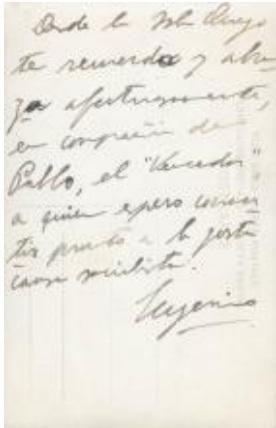 Desde la Isla
te recuerda y abra
za afectuosamente,
en compañía de
Pablo, el "Vencedor"
a quien espero conver
tir pronto a la justa
causa socialista.
Eugenio